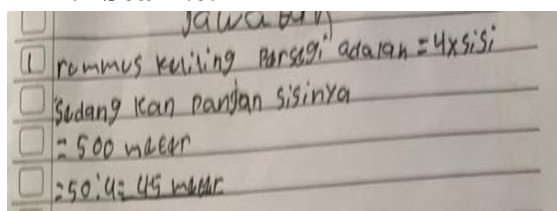 Jawaban
1 rummus keliling Parsegi adalah = 4xsisi
Sedang kan Panjan sisinya
= 500 meter
= 50:4= 45 meter